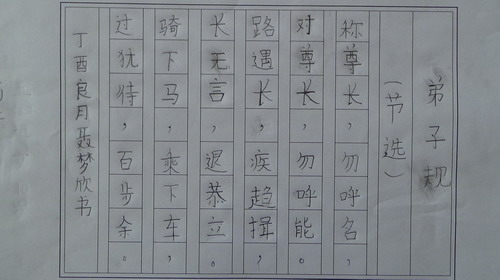 弟子规
（节选）
称尊长，勿呼名，
对尊长，勿呼能。
路遇长，疾趋揖，
长无言，退恭立。
骑下马，乘下车，
过犹待，百步余。
丁酉良月聂梦欣书